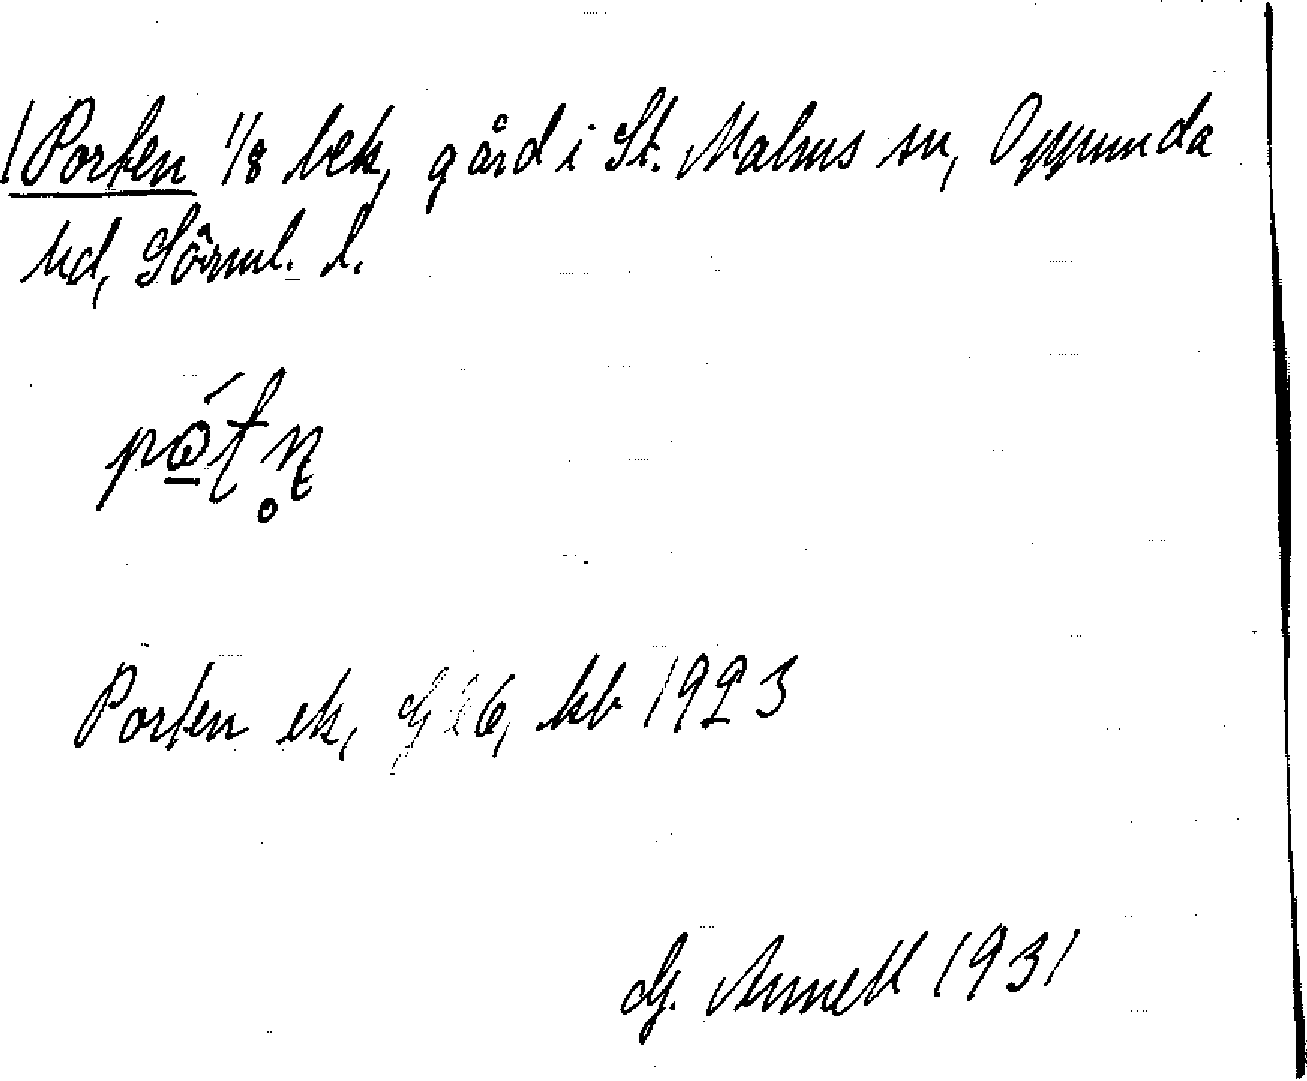 /Porten 1/8 bek, gård i St. Malms sn, Oppunda
hd, Sörml. l.
Porten ek, GEG, kb 1923
G. Annell 1931